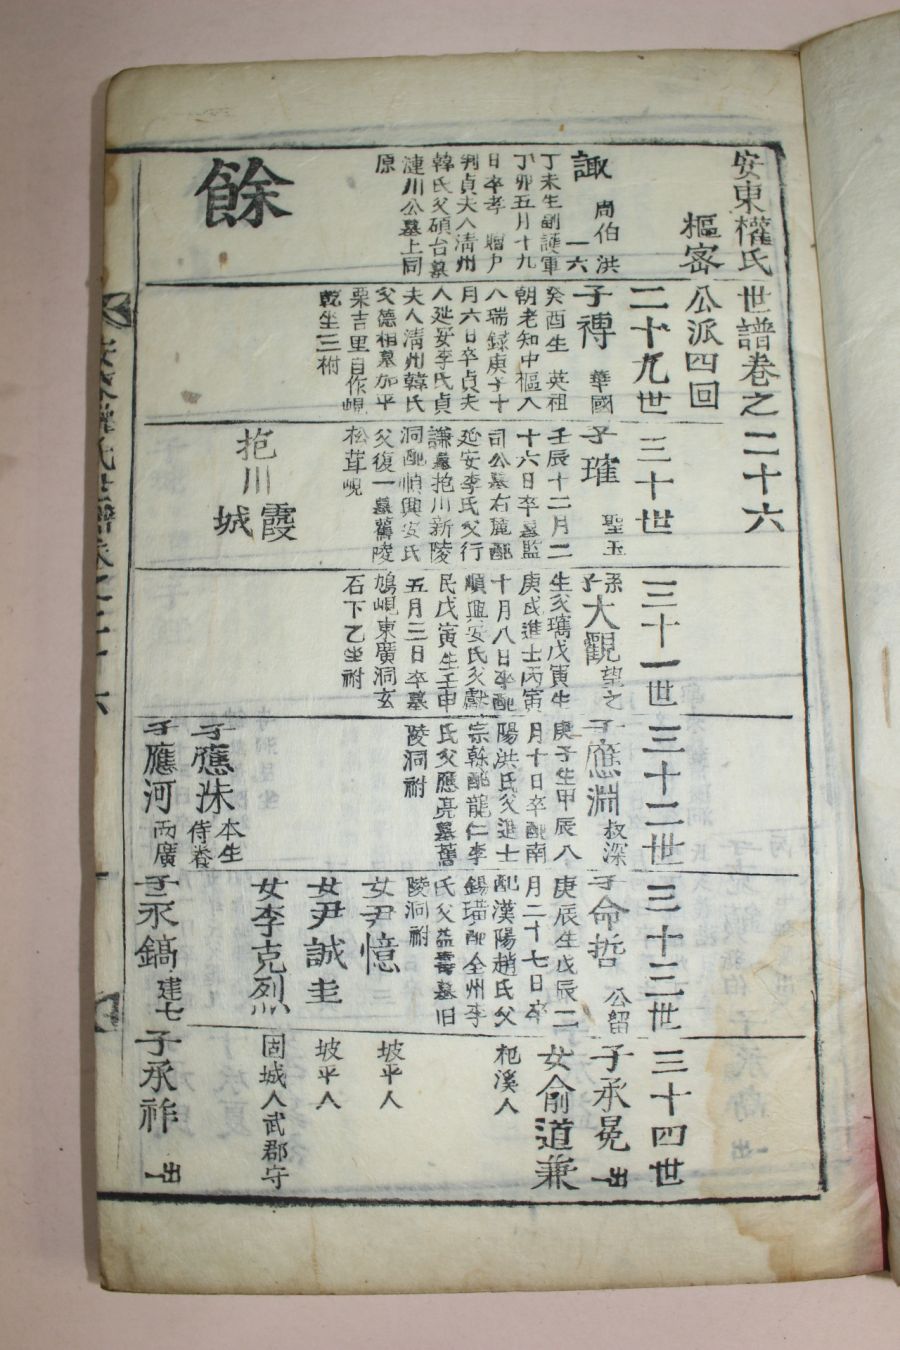 安東權氏世譜卷之二十六
樞密公派四回
二十九世
三十世
三十一世
三十二世
三十三世
三十四世
諏
周伯
洪
一六
丁未生副護軍
丁卯五月十九
日卒孝 贈戶
判貞夫人淸州
韓氏父碩台墓
漣川公墓上同
原
餘
子禣
華國
癸酉生 英祖
朝老知中樞入
八瑞錄庚子十
月六日卒貞夫
人延安李氏貞
夫人淸州韓氏
父德相墓加平
栗吉里自作峴
乾坐三祔
子璀
聖玉
壬辰十二月二
十六日卒墓監
司公墓右麓配
延安李氏父行
謙墓抱川新陵
洞配順興安氏
父復一墓舊陵
松茸峴
抱川
霞城
孫子大觀
望之
生父㻿戊寅生
庚戌進士丙寅
十月八日卒配
順興安氏父
民戊寅生壬申
五月三日卒墓
鳩峴東廣洞玄
石下乙坐祔
子應淵
叔深
庚子生甲辰八
月十日卒配南
陽洪氏父進士
宗榦配龍仁李
氏父應亮墓舊
陵洞祔
子應洙
本生
侍養
子應河
丙廣
子命哲
公留
庚辰生戊辰二
月二十七日卒
配漢陽趙氏父
錫璜配全州李
氏父益壽墓旧
陵洞祔
女尹憶
坡平人
女尹誠圭
坡平人
女李克烈
固城人武郡守
子永鎬
建七
子承冕
一出
女俞道兼
杞溪人
子承祚
一出